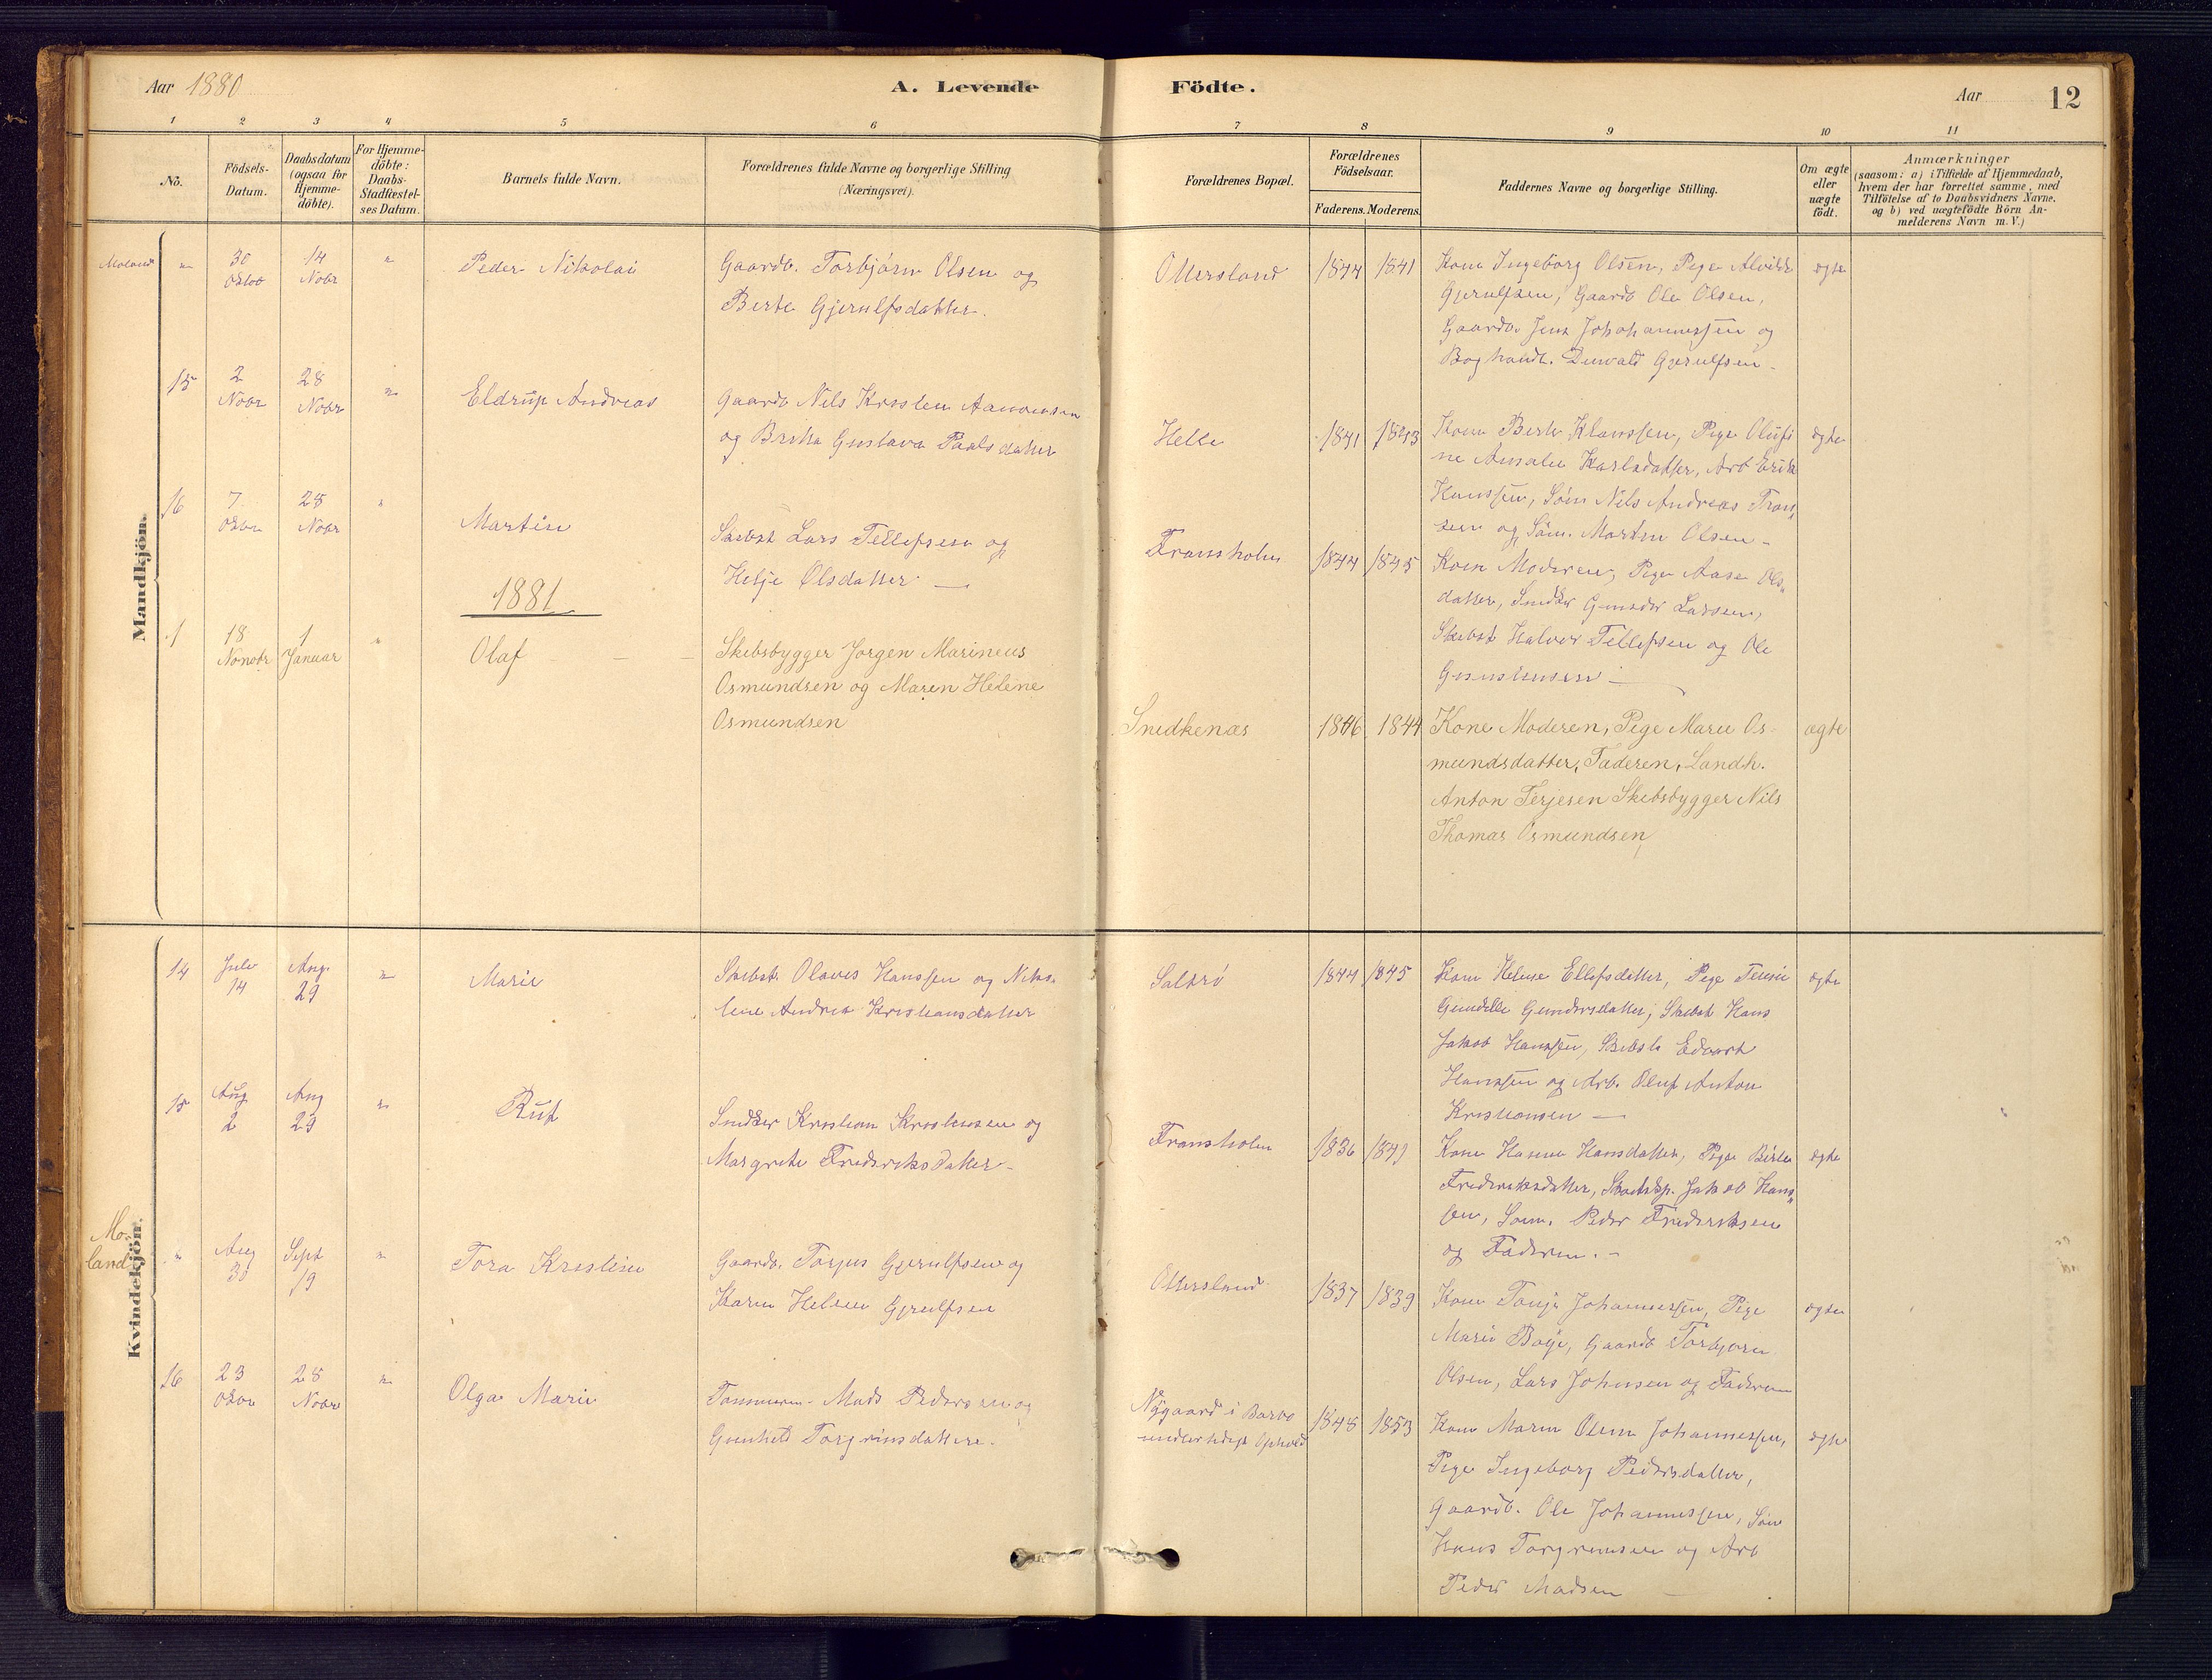 Aar 1880
A. Levende Födte.
Aar 12
1 2 3 4 5 6 7 8 9 10 11
No.
Födsels-
Datum.
Daabsdatum
(ogsaa for
Hjemme-
döbte).
For Hjemme-
döbte:
Daabs-
Stadfæstel-
ses Datum.
Barnets fulde Navn.
Forældrenes fulde Navne og borgerlige Stilling
(Næringsvei).
Forældrenes Bopæl.
Forældrenes
Födselsaar.
Faderens. Moderens.
Faddernes Navne og borgerlige Stilling.
Om ægte
eller
uægte
födt.
Anmærkninger
(saasom: a) i Tilfælde af Hjemmedaab,
hvem der har forrettet samme, med
Tilföielse af to Daabsvidners Navne,
og b) ved uægtefödte Börn An-
melderens Navn m. V.)
Mandkjön.
Moland " 30
Oktob
14
Nobr
"
Peder Nikolai
Gaardb. Torbjørn Olsen og
Berte Gjerulfsdatter.
Ottersland
1844 1841
Kone Ingeborg Olsen, Pige Alvilde
Gjerulfsen, Gaardb Ole Olsen,
Gaardb. Jens Johohannessen og
Boghandl. Gjerulfsen.
ægte
15
2
Nobr
28
Nobr
"
Eldrup Andreas
Gaardb Nils Kristen Aanonsen
og Gustava Paalsdatter
Helle
1841 1843
Kone Berte Klaussen, Pige Olufi
ne Amalie Karlsdatter, Arb Erik
Hanssen, Søm Nils Andreas
og Søm. Martin Olsen
ægte
16
7
Oktbr
28
Nobr
"
Martin
Skibst Lars Tellefsen og
Helje Olsdatter
Fransholm
1844 1845
Kone Moderen, Pige Aase Ols„
datter, Snedker Gunder Larsen,
Skibst Halvor Tellefsen og Ole
1881
1
18
Novobr
1
Januar
"
Olaf
Skibsbygger Jørgen Marineus
Osmundsen og Maren Helene
Osmundsen
Snedkenæs
1846 1844
Kone Moderen, Pige Maree Os-
mundsdatter, Faderen, Landh.
Anton Terjesen Skibsbygger Nils
Thomas Osmundsen,
ægte
Kvindekjön.
14
Juli
14
Aug.
29
"
Marie
Skibst. Olaves Hanssen og Niko-
line Andrea Kristiansdatter
Saltrø
1844 1845
Kone Helene Ellefsdatter, Pige
Gundersdatter, Skibst Hans
Jakob Hanssen, Skibst Edvart
Hanssen og Arb. Oluf Anton
Kristiansen
ægte
15
Aug
2
Aug
29
"
Rut
Snedker Kristian Kristensen og
Margrete Frederiksdatter
Fransholm
1836 1841
Kone Hansdatter, Pige Birte
Frederiksdatter, Jakob Hans„
sen, Søm. Peder Frederiksen
og Faderen.
ægte
Mo-
land
"
Aug
30
Sept
19
"
Tora Kristine
Gaardb. Torjus Gjerulfsen og
Karen Helene Gjerulfsen
Ottersland
1837 1839
Kone Tonje Johannessen, Pige
Marie Boije, Gaardb Torbjørn
Olsen, Lars Johnsen og Faderen
ægte
16
23
Oktbr
28
Nobr
"
Olga Marie
Tømmerm. Mads Pedersen og
Gunhild Torgrimsdatter.
Nygaard i Barbo
midlertidigt Ophold
1848 1853
Kone Maren Olene Johannessen,
Pige Ingeborg Pedersdatter,
Gaardb. Ole Johannessen, Søm
Hans Torgrimsen og Arb
Peder Madsen
ægte